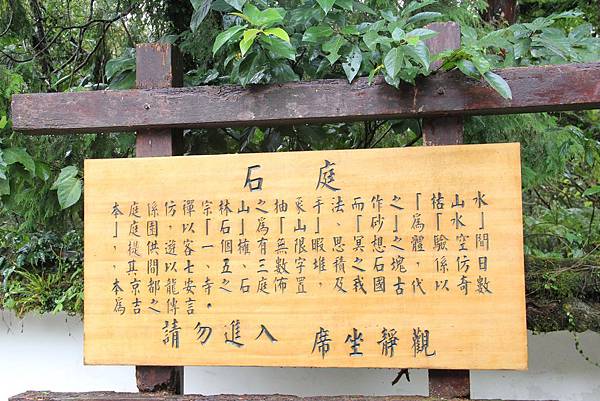 石庭
本庭係仿禪宗林山之抽象手法而作之「枯山水
」庭園，以「石」為「山」、「砂」為「水」
，提供遊客一個擁有無限暇思冥想之體驗空間
，其間以七、五、三數字堆積之石塊，係仿日
本京都龍安寺之石庭佈置，及我國古代以奇數
為吉之傳言。
請勿進入 席坐靜觀